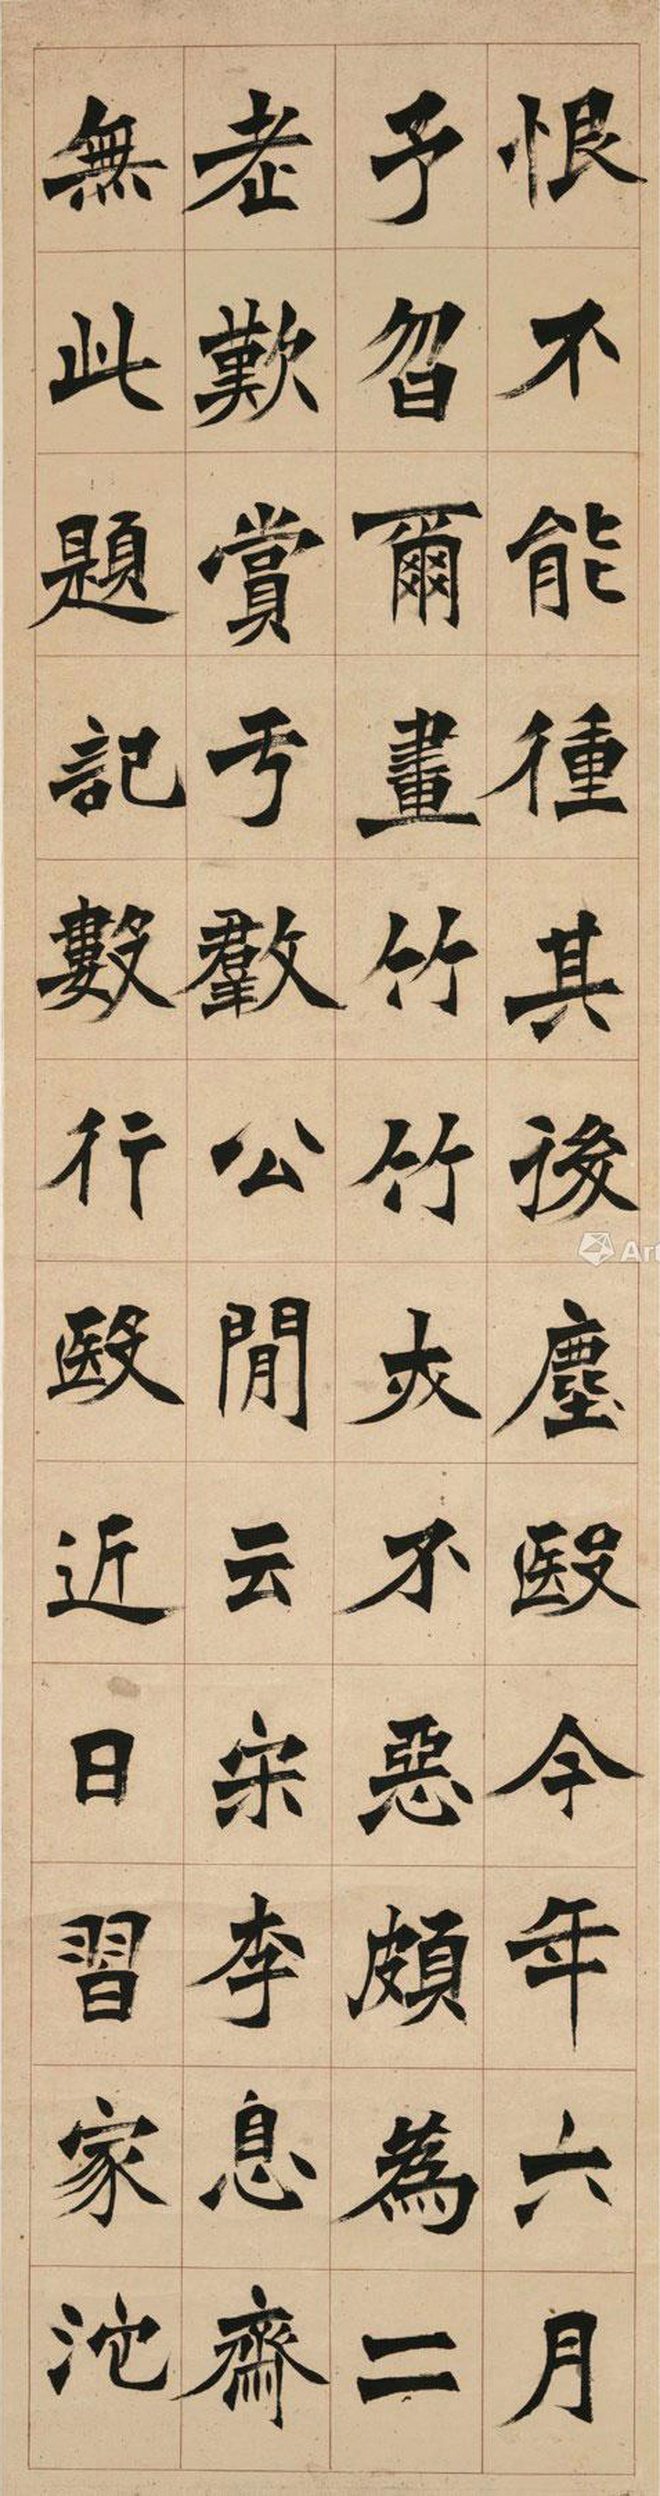 恨不能種其後塵歐今年六月
予忽爾畫竹竹亦不惡頗為二
老歎賞于群公間云宋李息齋
無此題記數行歐近日習家池
Art